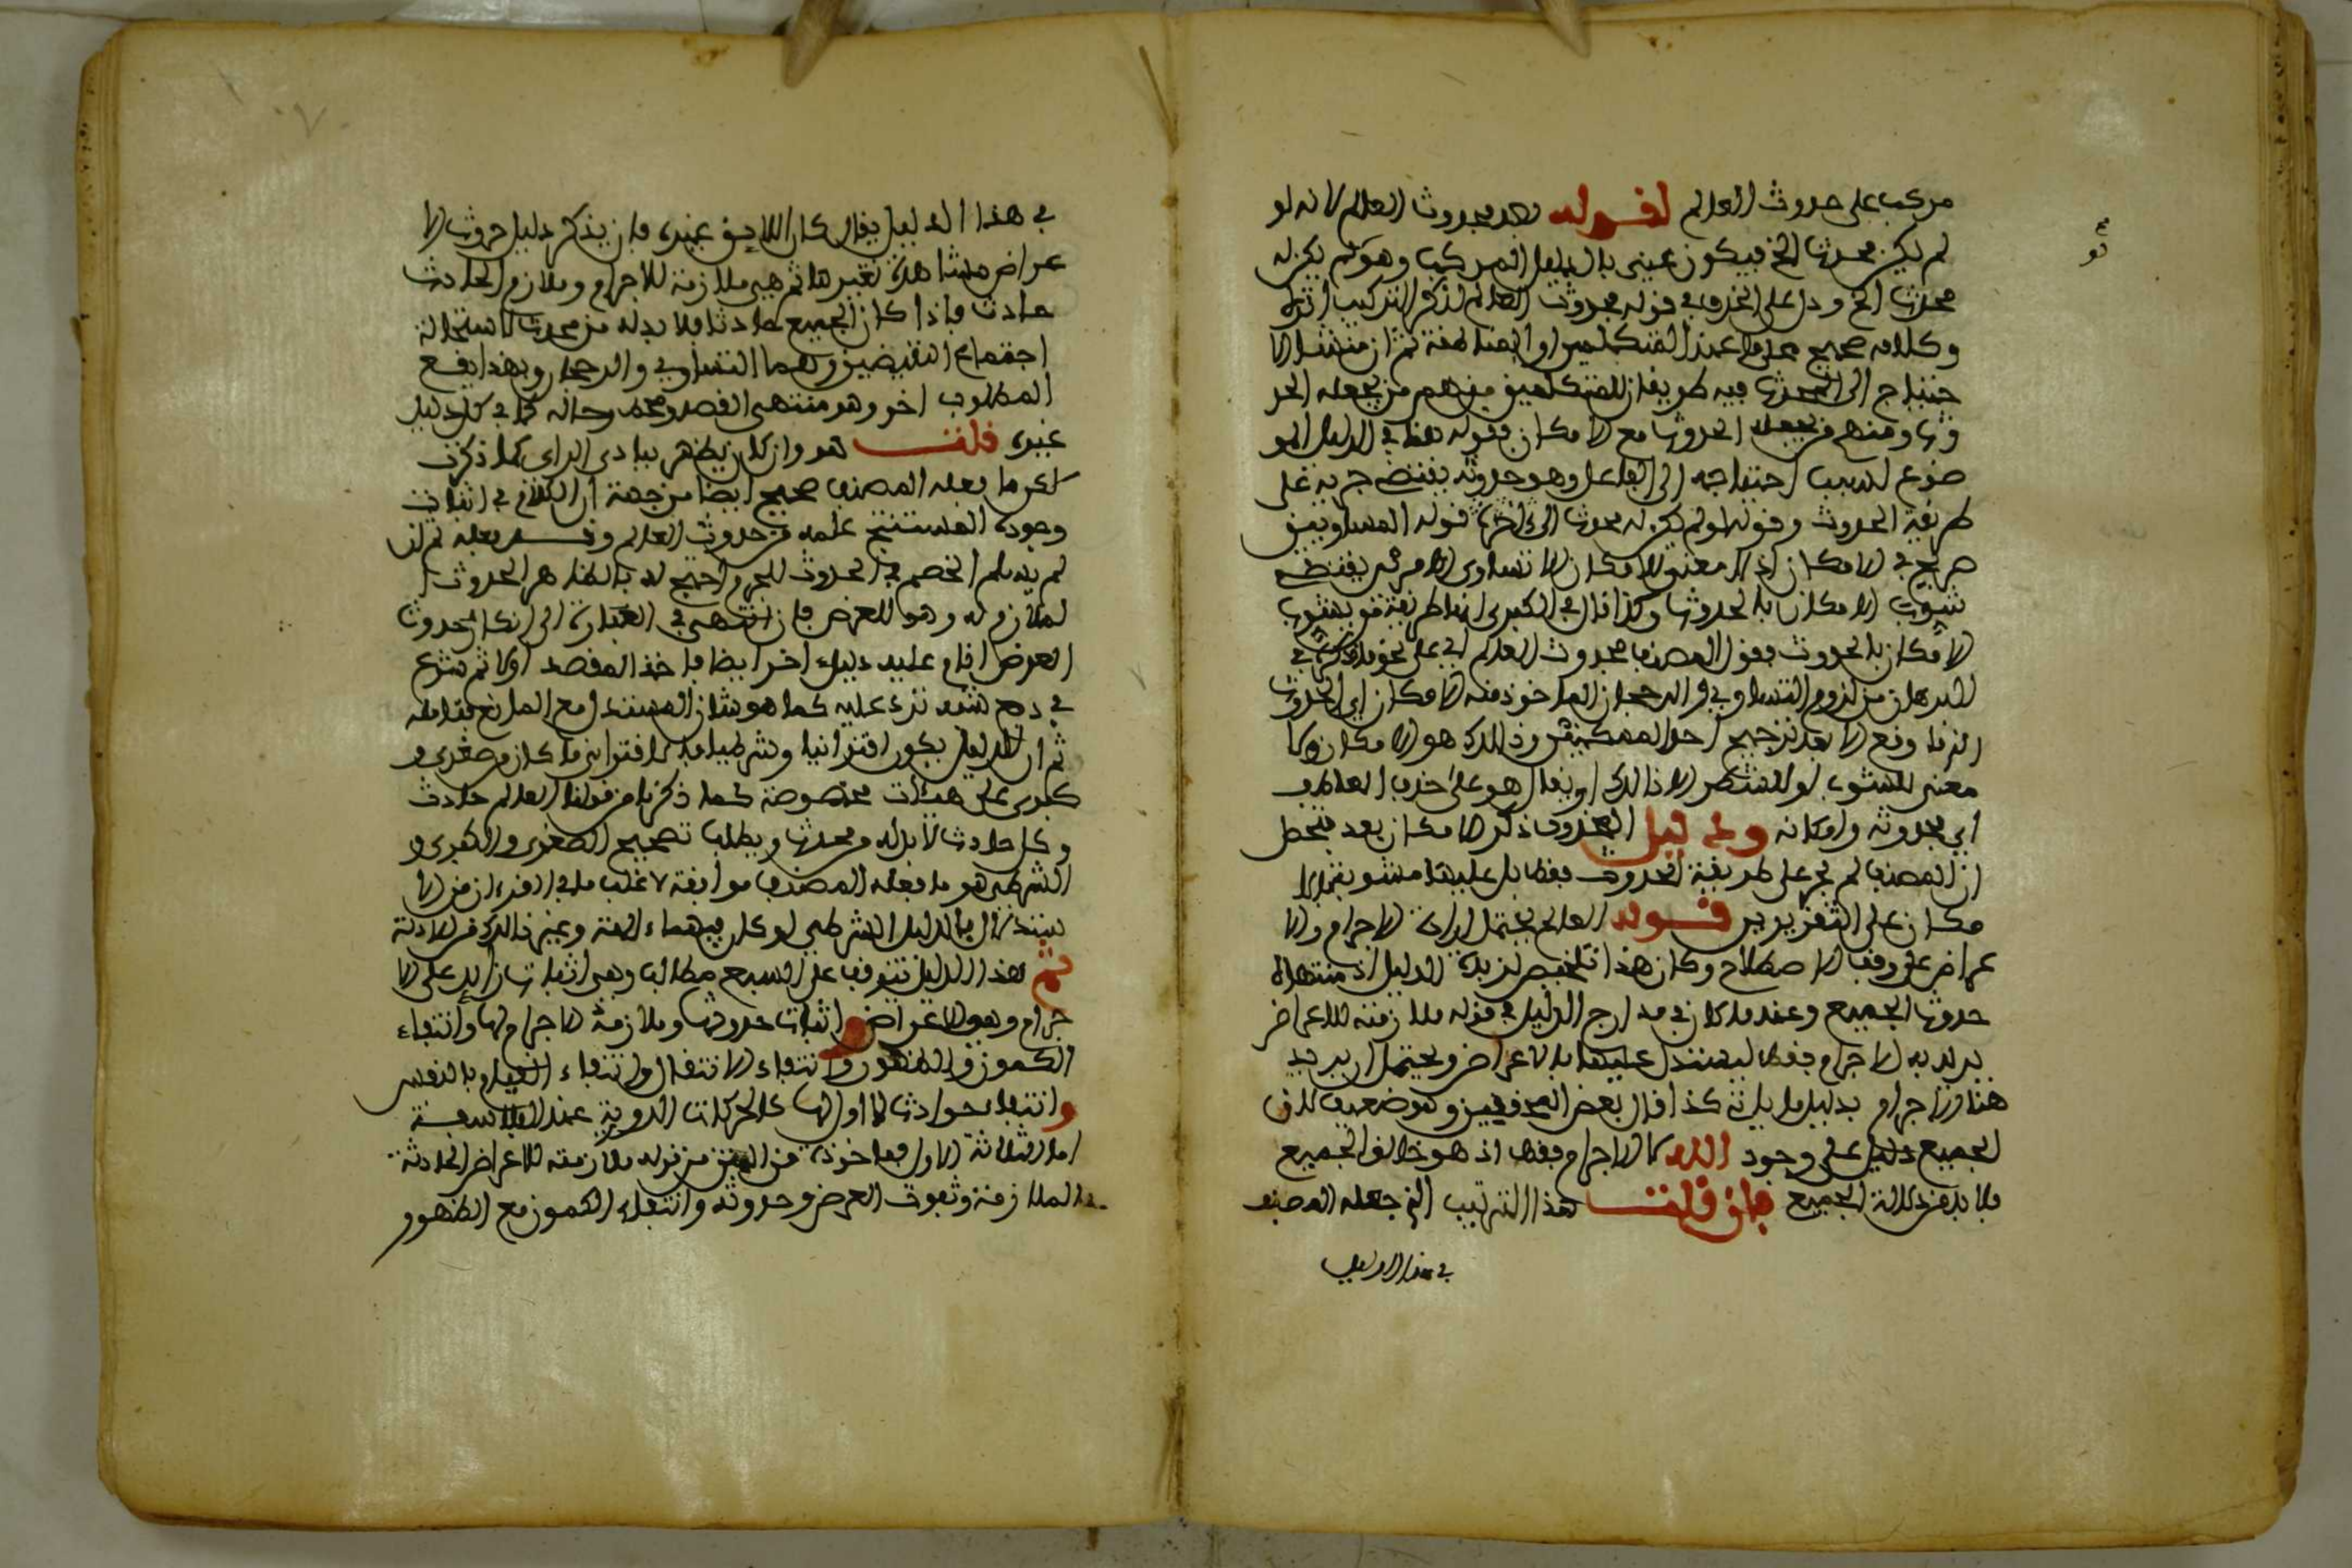 مركب على حدوث العالم لقوله بعد بحدوث العالم لانه لو
لم يكن محدث الخ فيكون عينى بالدليل المركب وهو لم يكن له
محدث الخ ودل على الحذف في قوله بحدوث العالم لذكر التركيب اثره
وكلامه صحيح عند المتكلمين او المناطقة ثم ان منشا الا
حتياج الى المحدث فيه طريقان للمتكلمين منهم من يجعله الحد
وث ومنهم من يجعله الحدوث مع الامكان فقوله هنا في الدليل المو
ضوع لسبب احتياجه الى الفاعل وهو حدوثه يقتضى جريه على
طريقة الحدوث وقوله لو لم يكن له محدث الى اخره قوله المساويين
صريح في الامكان اذ لا معنى للامكان الا تساوى الامرين يقتضى
شوب الامكان بالحدوث وكذا قال في الكبرى انها طريقة من يشوب
الامكان بالحدوث فقول المصنف بحدوث العالم اي على نحو ما ذكرته في
البرهان من لزوم التساوي والرجحان الماخوذ منه الامكان اي الحدوث
الذي وقع الا بعد ترجيح احد الممكنين وذلك هو الامكان ولا
معنى للشوب او للشطر الا ذلك او يقال هو على حذف العاطف
اي بحدوثه وامكانه ودليل المحذوف ذكر الامكان بعد فتحصل
ان المصنف لم يجر على طريقة الحدوث فقط بل عليها مشوبة بالا
مكان على التقريرين قوله العالم يحتمل ارادة الاجرام والا
عراض على وفق الاصطلاح وكان هذا تلخيص لزبدة الدليل اذ منتهاه
حدوث الجميع وعند ما كان في مدارج الدليل في قوله ملازمته للاعراض
يريد به الاجرام فقط ليستدل عليها بالاعراض ويحتمل ان يريد
هنا الاجرام بدليل ما ياتي كذا قال بعض المحققين وهو ضعيف لان
الجميع دليل على وجود الله لا الاجرام فقط اذ هو خالق الجميع
فلا بد من دلالة الجميع فان قلت هذا الترتيب الذي جعله المصنف
في هذا الدليل
في هذا الدليل يقال كان اللايق غيره فان يذكر دليل حدوث الا
عراض مشاهدة تغيرها ثم هي ملازمة للاجرام وملازم الحادث
حادث فاذا كان الجميع حادثا فلا بد له من محدث لاستحالة
اجتماع النقيضين وهما التساوي والرجحان وبهذا يقع
المطلوب اخر وهو منتهى القصد ومحط رحاله كما في كل دليل
غيره قلت هو وان كان يظهر ببادى الراى كما ذكرت
لكن ما فعله المصنف صحيح ايضا من جهة ان الكلام في اثبات
وجوده المستنتج علمه من حدوث العالم
لم يسلم الخصم في الحدوث للجرم احتج له بالظاهر الحدوث
لملازم له وهو للعرض فان انتهى في العبارة الى انكار حدوث
العرض اقام عليه دليلا اخر ايضا فاخذ المقصد اولا ثم شرع
في دفع شبه ترد عليه كما هو شان المستدل مع المانع تقابله
ثم ان الدليل يكون اقترانيا وشرطيا فالاقتراني ما كان من صغرى و
كبرى على هيئات مخصوصة كما ذكرنا من قولنا العالم حادث
وكل حادث لا بد له من محدث ويطلب تصحيح الصغرى والكبرى و
الشرطي هو ما فعله المصنف موافقة لاغلب ما في القرءان من الا
ستدلال بالدليل الشرطي لو كان فيهما ءالهة وغير ذلك من الادلة
ثم هذا الدليل تتوقف على السبع مطالب وهي اثبات زائد على الا
جرام وهو الاعراض واثبات حدوثها وملازمة الاجرام لها وانتفاء
الكمون والظهور وانتفاء الانتقال وانتفاء القيام بالنفس
وانتفاء حوادث لا اول لها كالحركات الدورية عند الفلاسفة
اما الثلاثة الاول فماخوذة من المتن من قوله ملازمته للاعراض الحادثة
فالملازمة وثبوت العرض وحدوثه وانتفاء الكمون مع الظهور